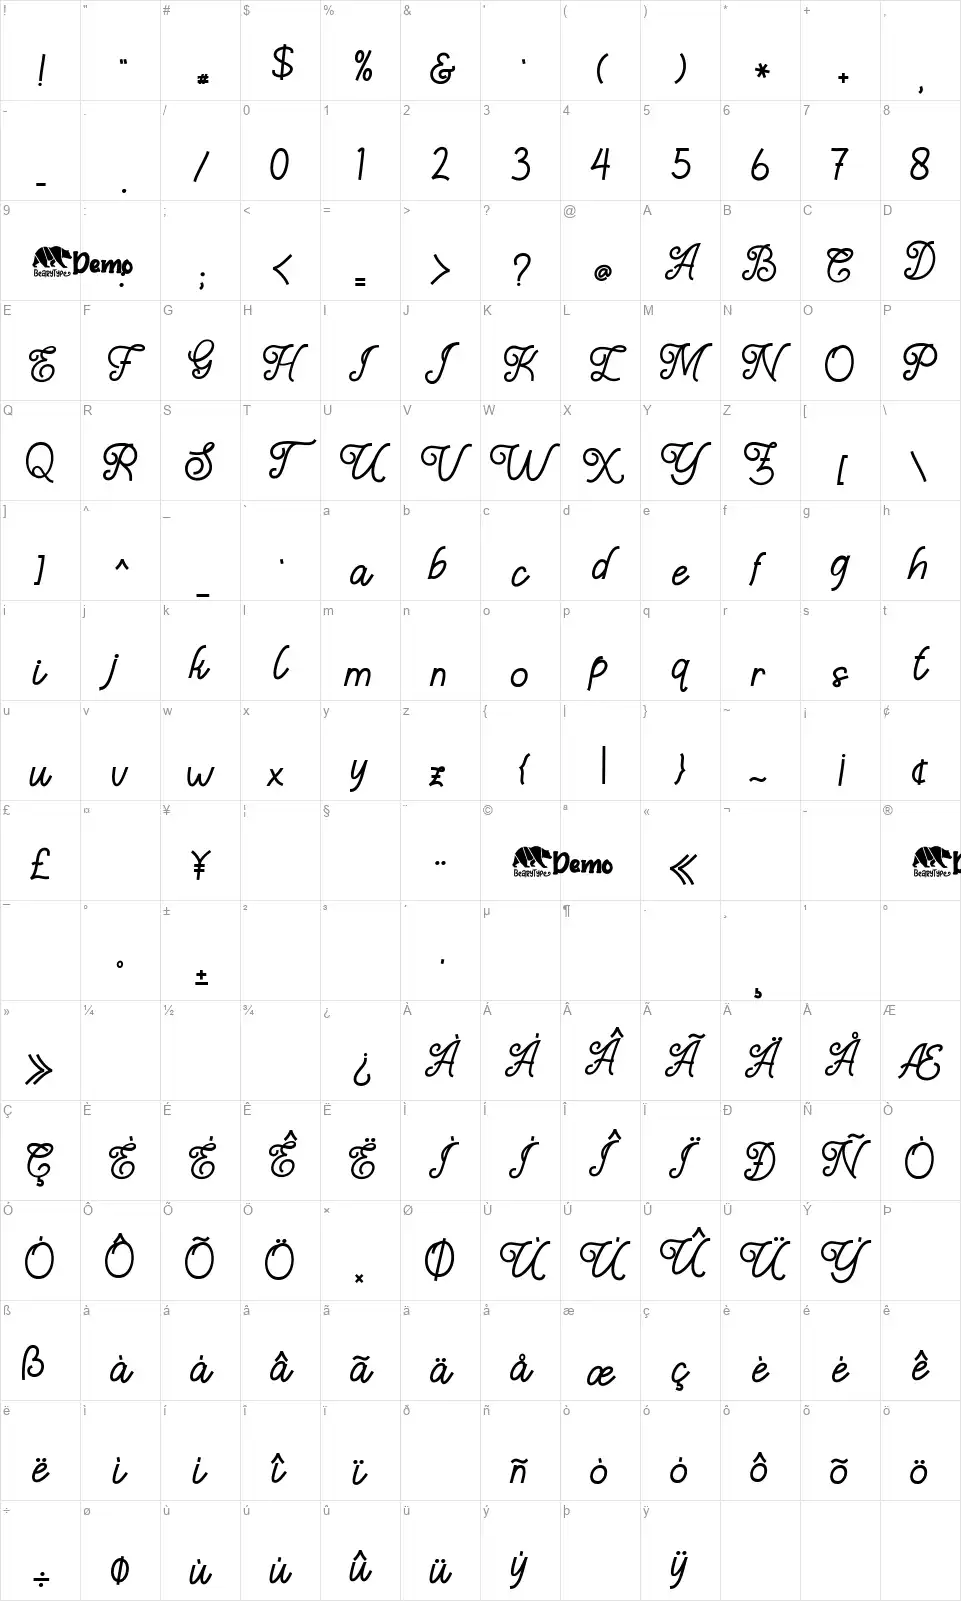 ! " # $ % & ' ( ) * + ,
! " # $ % & ' ( ) * + ,
- . / 0 1 2 3 4 5 6 7 8
- . / 0 1 2 3 4 5 6 7 8
9 : ; < = > ? @ A B C D
BearyType Demo : ; < = > ? @ A B C D
E F G H I J K L M N O P
E F G H I J K L M N O P
Q R S T U V W X Y Z [ \
Q R S T U V W X Y Z [ \
] ^ _ ` a b c d e f g h
] ^ _ ` a b c d e f g h
i j k l m n o p q r s t
i j k l m n o p q r s t
u v w x y z { | } ~ ¡ ¢
u v w x y z { | } ~ ¡ ¢
£ ¤ ¥ ¦ § ¨ © ª « ¬ - ®
£ ¥ ¨ BearyType Demo « BearyType D
¯ ° ± ² ³ ´ µ ¶ · ¸ ¹ º
° ± ´ ¸
» ¼ ½ ¾ ¿ À Á Â Ã Ä Å Æ
» ¿ À Á Â Ã Ä Å Æ
Ç È É Ê Ë Ì Í Î Ï Ð Ñ Ò
Ç È É Ê Ë Ì Í Î Ï Ð Ñ Ò
Ó Ô Õ Ö × Ø Ù Ú Û Ü Ý Þ
Ó Ô Õ Ö × Ø Ù Ú Û Ü Ý
ß à á â ã ä å æ ç è é ê
ß à á â ã ä å æ ç è é ê
ë ì í î ï ð ñ ò ó ô õ ö
ë ì í î ï ñ ò ó ô õ ö
÷ ø ù ú û ü ý þ ÿ
÷ ø ù ú û ü ý ÿ